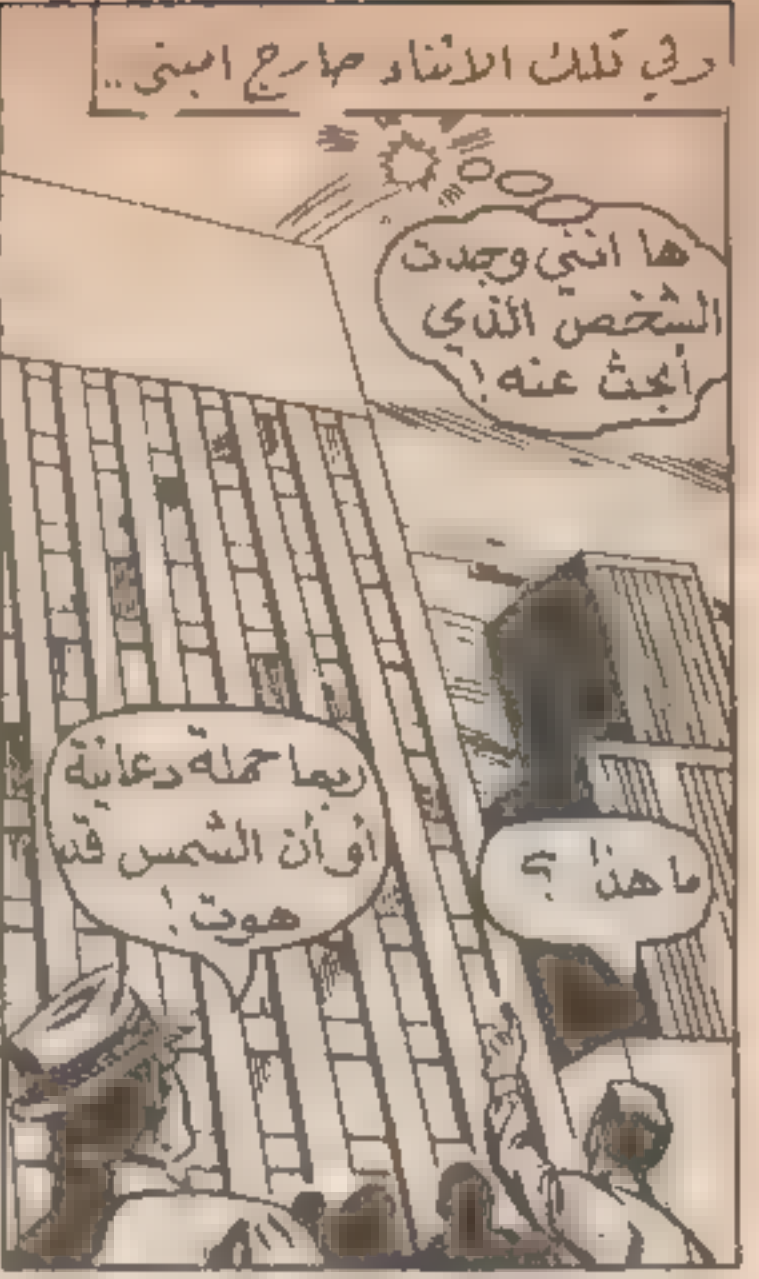 وفي تلك الاثناء خارج المبنى ..
ها انني وجدت
الشخص الذي
أبحث عنه !
ما هذا ؟
ربما حملة دعائية
أو أن الشمس قد
هوت !